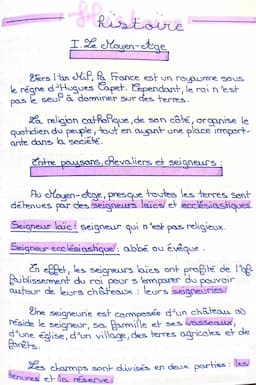 histoire
I. Le Moyen-Age
Vers l'an Mil, la France est un royaume sous
le règne d'Hugues Capet. Cependant, le roi n'est
pas le seul à dominer sur des terres.
La religion catholique, de son côté, organise le
quotidien du peuple, tout en ayant une place import-
ante dans la société.
Entre paysans, chevaliers et seigneurs :
Au Moyen-Age, presque toutes les terres sont
détenues par des seigneurs laïcs et ecclésiastiques.
Seigneur laïc : seigneur qui n'est pas religieux.
Seigneur ecclésiastique : abbé ou évêque.
En effet, les seigneurs laïcs ont profité de l'af-
faiblissement du roi pour s'emparer du pouvoir
autour de leurs châteaux : leurs seigneuries.
Une seigneurie est composée d'un château où
réside le seigneur, sa famille et ses vasseaux,
d'une église, d'un village, des terres agricoles et de
forêts.
Les champs sont divisés en deux parties : les
tenures et la réserve.